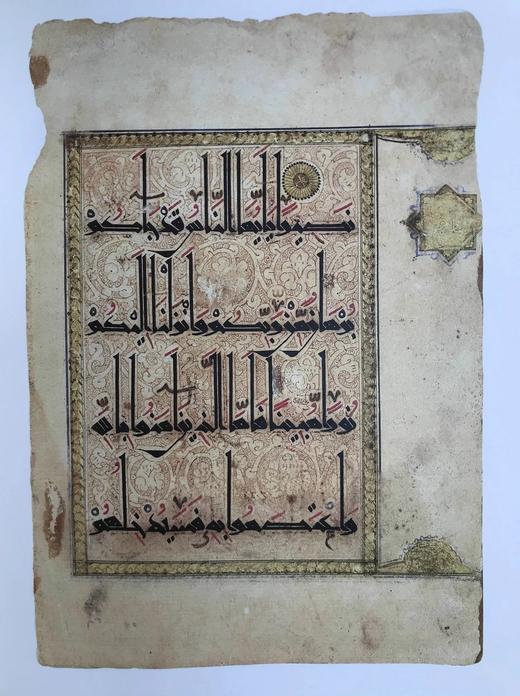 نَصِيرًا يَٰأَيُّهَا النَّاسُ قَدْ جَاءَكُمْ
بُرْهَٰنٌ مِنْ رَبِّكُمْ وَأَنْزَلْنَا إِلَيْكُمْ
نُورًا مُبِينًا فَأَمَّا الَّذِينَ آمَنُوا بِاللَّهِ
وَاعْتَصَمُوا بِهِ فَسَيُدْخِلُهُمْ